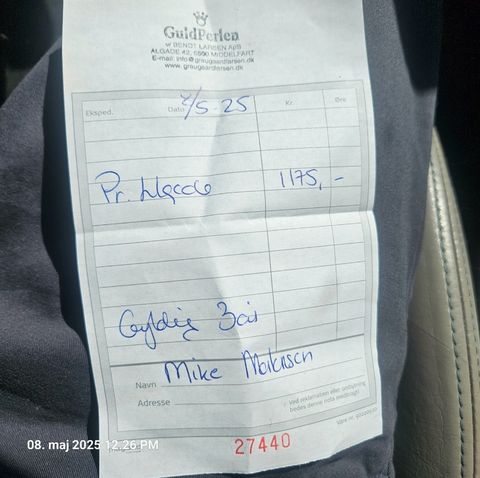 GuldPerlen
v/ BENDT LARSEN ApS
ALGADE 42, 5500 MIDDELFART
E-mail: info@graugaardlarsen.dk
www.graugaardlarsen.dk
Eksped. Dato /5-25 Kr. Øre
Pr. 1175,-
Gyldig 3 år
Navn Mike
Adresse
Ved reklamation eller ombytning
bedes denne nota medbragt
Vare nr.
27440
08. maj 2025 12.26 PM